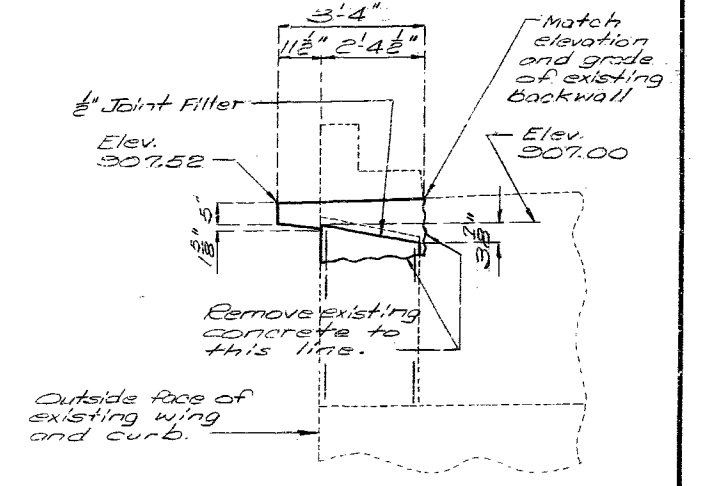 3'-4"
11½" 2'-4½"
Match
elevation
and grade
of existing
backwall
½" Joint Filler
Elev.
907.52
Elev.
907.00
5"
1⅝"
3⅞"
Remove existing
concrete to
this line.
Outside face of
existing wing
and curb.